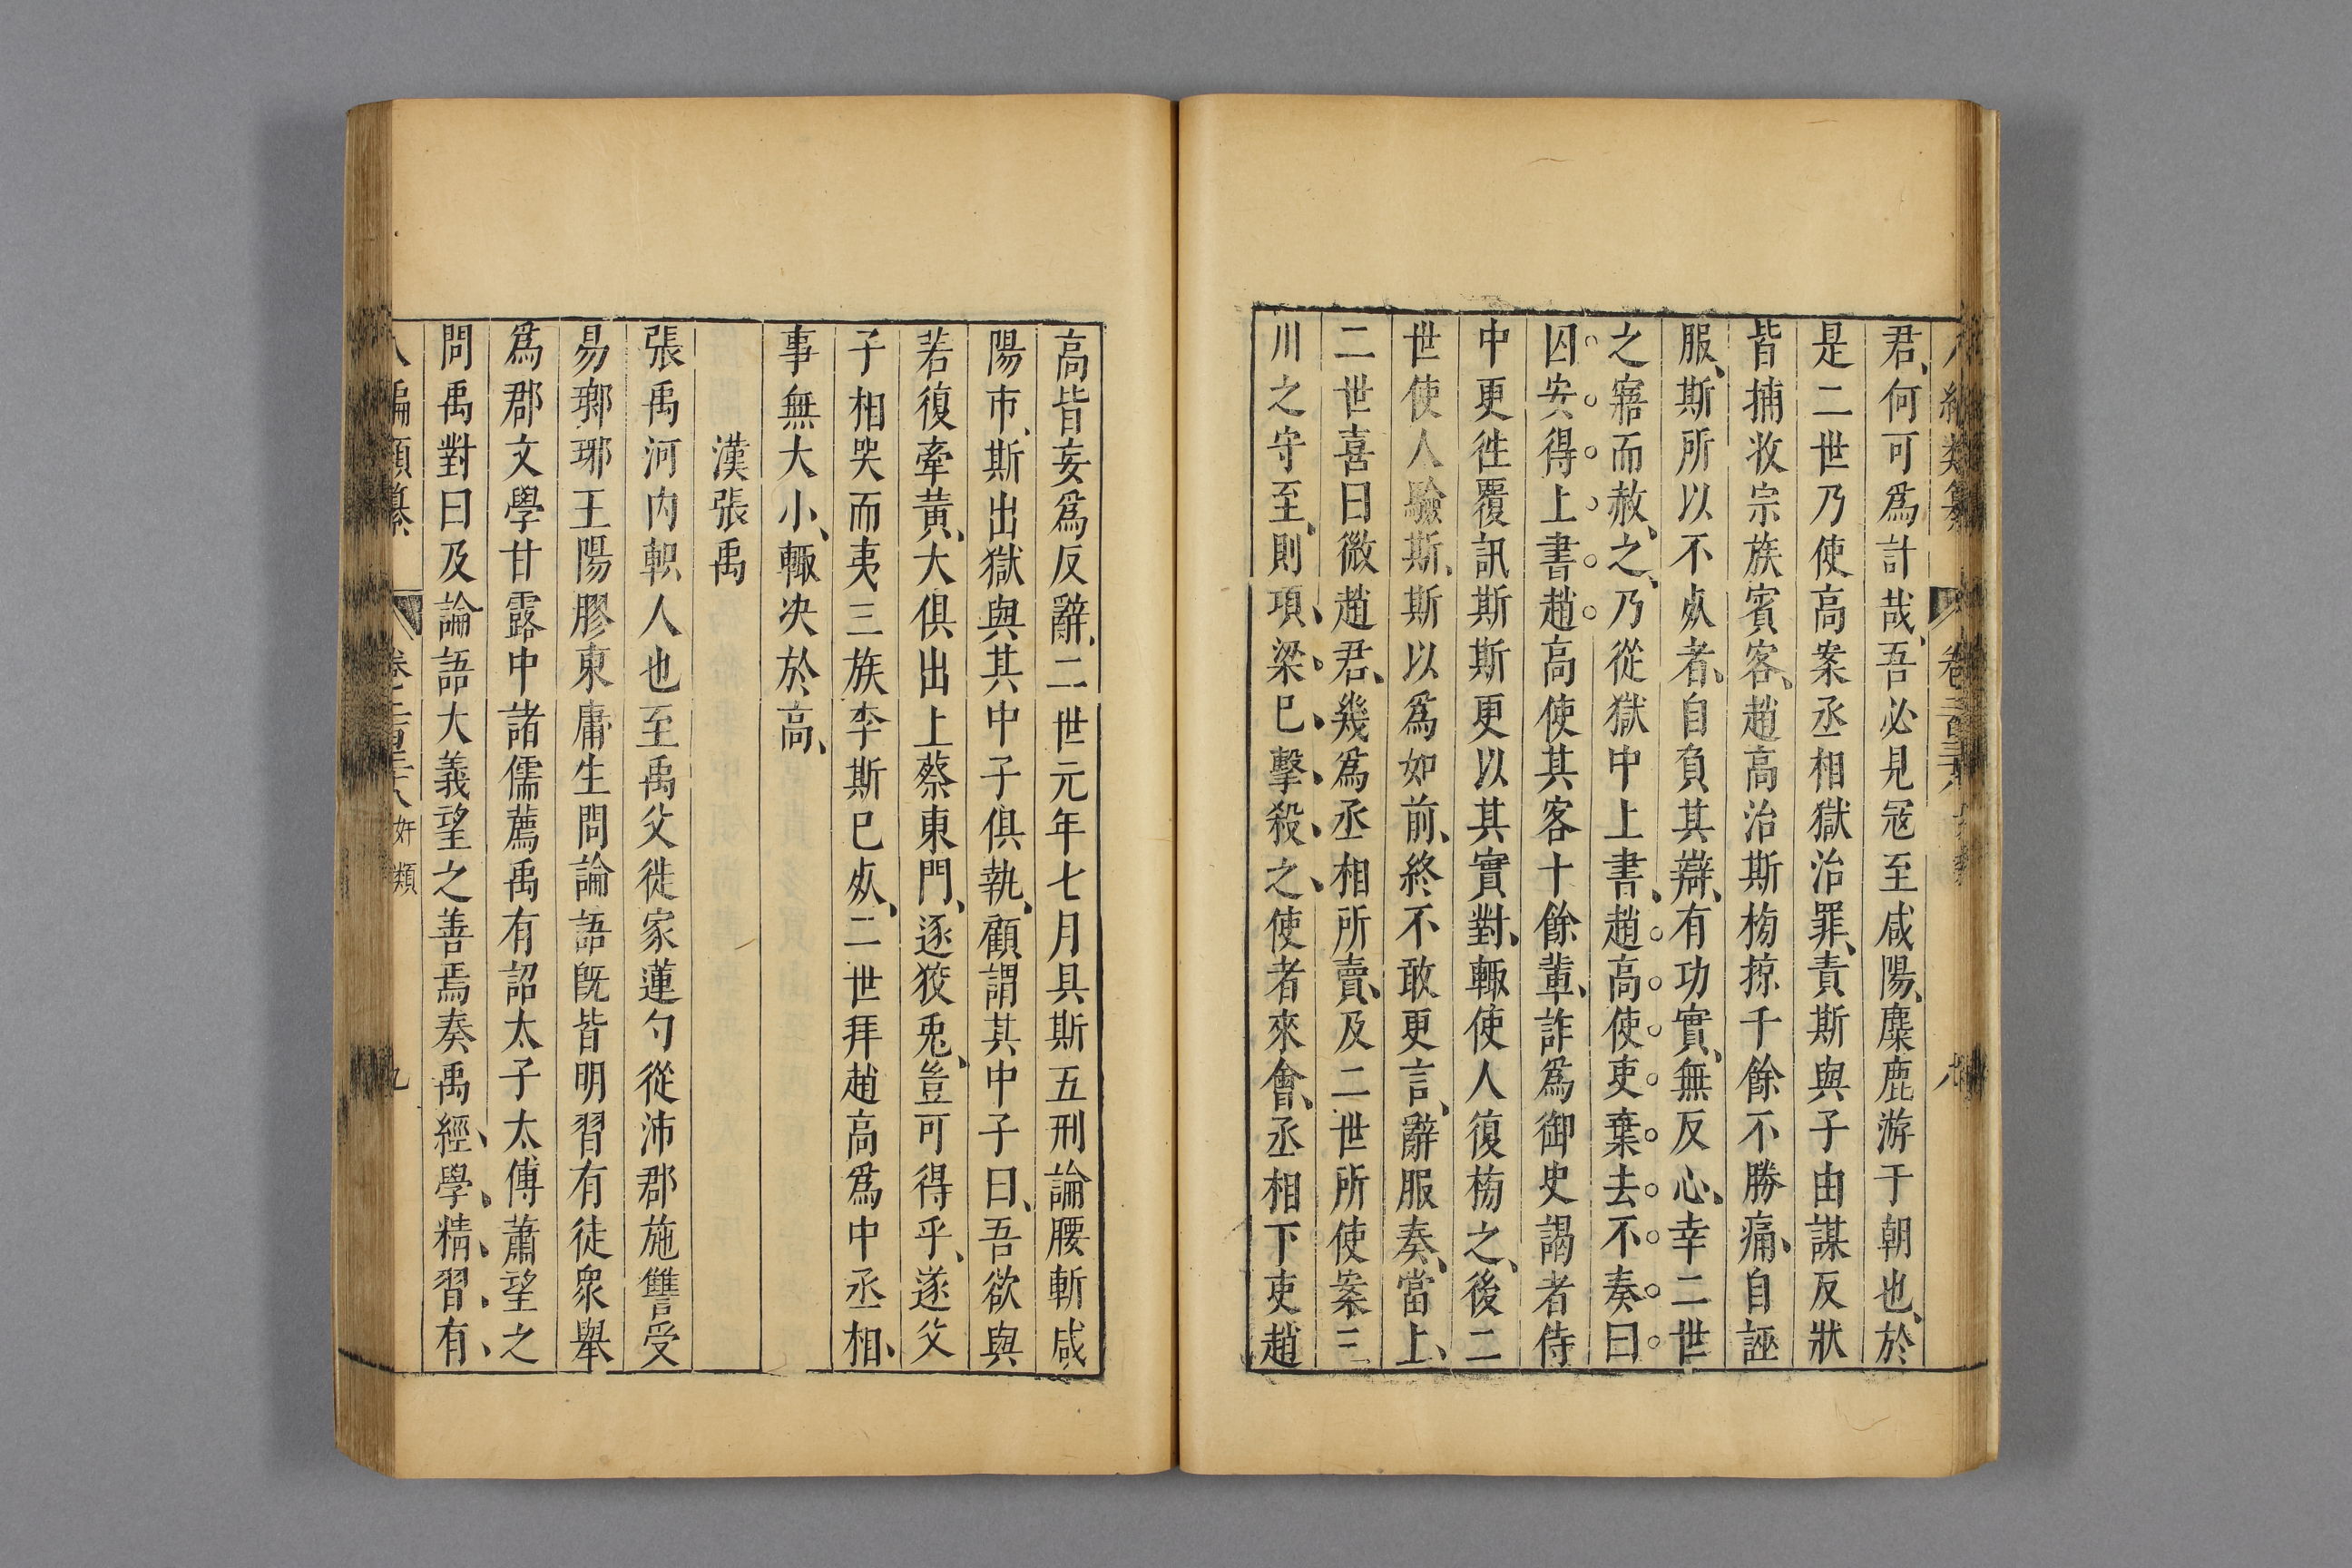 君、何可爲計哉、吾必見冦至咸陽、麋鹿游于朝也、於
是二世乃使高案丞相獄治罪、責斯與子由謀反狀
皆捕收宗族賓客、趙高治斯榜掠千餘不勝痛、自誣
服、斯所以不死者、自負其辯、有功實、無反心、幸二世
之寤而赦、之、乃從獄中上書、趙高使吏棄去不奏曰
囚安得上書趙高使其客十餘輩、詐爲御史謁者侍
中更徃覆訊斯斯更以其實對、輙使人復榜之、後二
世使人驗斯、斯以爲如前、終不敢更言、辭服奏、當上、
二世喜曰微趙君、幾爲丞相所賣、及二世所使案三
川之守至、則項、梁、已、擊、殺、之、使者來會、丞相下吏趙
高皆妄爲反辭、二世元年七月具斯五刑論腰斬咸
陽市、斯出獄與其中子俱執、顧謂其中子曰、吾欲與
若復牽黃、犬俱出上蔡東門、逐狡兎、豈可得乎、遂父
子相哭而夷三族李斯已死、二世拜趙高爲中丞相、
事無大小、輙决於高、
漢張禹
張禹河内軹人也至禹父徙家蓮勺從沛郡施讐受
易瑯琊王陽膠東庸生問論語旣皆明習有徒衆舉
爲郡文學甘露中諸儒薦禹有詔太子太傅蕭望之
問禹對曰及論語大義望之善焉奏禹經、學、精、習、有、
八編類纂 奸類 九